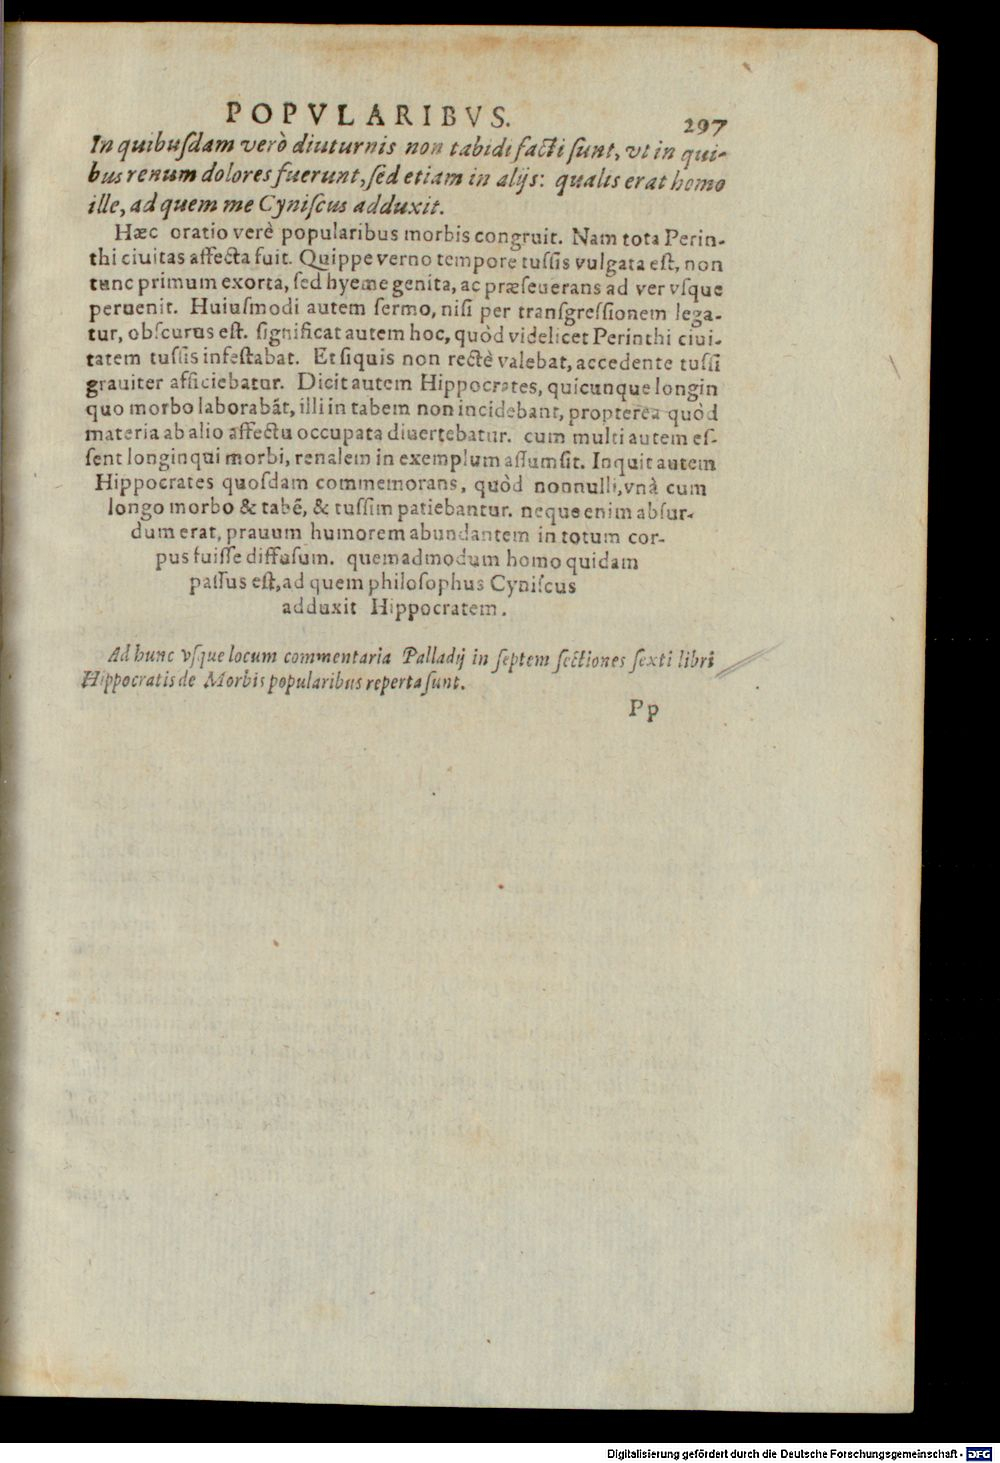 POPVLARIBVS.
297
In quibuſdam verò diuturnis non tabidi facti ſunt, vt in qui-
bus renum dolores fuerunt, ſed etiam in alijs: qualis erat homo
ille, ad quem me Cyniſcus adduxit.
Hæc oratio verè popularibus morbis congruit. Nam tota Perin-
thi ciuitas affecta fuit. Quippe verno tempore tuſſis vulgata eſt, non
tunc primum exorta, ſed hyeme genita, ac præſeuerans ad ver vſque
peruenit. Huiuſmodi autem ſermo, niſi per tranſgreſſionem lega-
tur, obſcurus eſt. ſignificat autem hoc, quòd videlicet Perinthi ciui-
tatem tuſſis infeſtabat. Et ſiquis non rectè valebat, accedente tuſſi
grauiter afficiebatur. Dicit autem Hippocrates, quicunque longin
quo morbo laborabãt, illi in tabem non incidebant, propterea quòd
materia ab alio affectu occupata diuertebatur. cum multi autem eſ-
ſent longinqui morbi, renalem in exemplum aſſumſit. Inquit autem
Hippocrates quoſdam commemorans, quòd nonnulli, vnà cum
longo morbo & tabẽ, & tuſſim patiebantur. neque enim abſur-
dum erat, prauum humorem abundantem in totum cor-
pus fuiſſe diffuſum. quemadmodum homo quidam
paſſus eſt, ad quem philoſophus Cyniſcus
adduxit Hippocratem.
Ad hunc vſque locum commentaria Palladij in ſeptem ſectiones ſexti libri
Hippocratis de Morbis popularibus reperta ſunt.
Pp
Digitalisierung gefördert durch die Deutsche Forschungsgemeinschaft - DFG